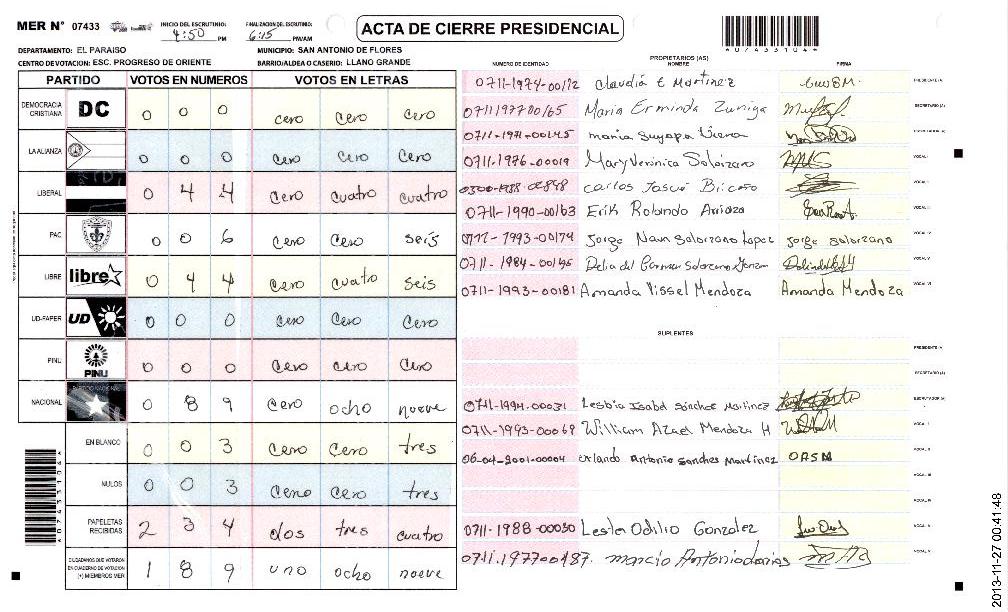 MER N° 07433 INICIO DEL ESCRUTINIO: 4:50 PM FINALIZACION DEL ESCRUTINIO: 6:15 PM/AM
ACTA DE CIERRE PRESIDENCIAL
*07433104*
DEPARTAMENTO: EL PARAISO MUNICIPIO: SAN ANTONIO DE FLORES
CENTRO DE VOTACION: ESC. PROGRESO DE ORIENTE BARRIO/ALDEA O CASERIO: LLANO GRANDE
PARTIDO VOTOS EN NUMEROS VOTOS EN LETRAS
DEMOCRACIA CRISTIANA DC 0 0 0 cero cero cero
LA ALIANZA 0 0 0 cero cero cero
LIBERAL 0 4 4 cero cuatro cuatro
PAC 0 0 6 cero cero seis
LIBRE libre 0 4 4 cero cuatro seis
UD-FAPER UD 0 0 0 cero cero cero
PINU PINU 0 0 0 cero cero cero
NACIONAL 0 8 9 cero ocho nueve
EN BLANCO 0 0 3 cero cero tres
NULOS 0 0 3 cero cero tres
PAPELETAS RECIBIDAS 2 3 4 dos tres cuatro
CIUDADANOS QUE VOTARON EN CUADERNO DE VOTACION (+) MIEMBROS MER 1 8 9 uno ocho nueve
PROPIETARIOS (AS)
NUMERO DE IDENTIDAD NOMBRE FIRMA
0711-1974-00172 Claudia E Martinez PRESIDENTE (A)
0711197700165 Maria Erminda Zuniga SECRETARIO (A)
0711-1971-00245 maria Suyapa ESCRUTADOR (A)
0711-1976-00019 Mary Verinica Solorzano VOCAL I
Carlos Josué Briceño VOCAL II
0711-1990-00163 Erik Rolando VOCAL III
-1993-00174 Jorge Naun Solorzano Lopez Jorge Solorzano VOCAL IV
0711-1984-00195 Delia del Carmen Solorzano VOCAL V
0711-1993-00181 Amanda Yissel Mendoza Amanda Mendoza VOCAL VI
SUPLENTES
PRESIDENTE (A)
SECRETARIO (A)
0711-1994-00031 Lesbia Isabel Sánchez Martinez ESCRUTADOR (A)
0711-1993-00069 William Azael Mendoza H VOCAL I
06-04-2001-00004 Orlando Antonio Sanches Martínez OASM VOCAL II
VOCAL III
VOCAL IV
0711-1988-00030 Lester Odilio Gonzalez VOCAL V
0711.197700187. Marcio VOCAL VI
*07433104*
2013-11-27 00:41:48